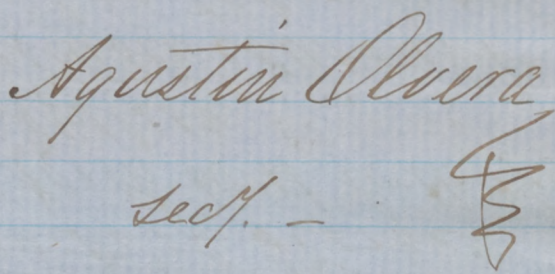 Agustin Olvera
secy. –